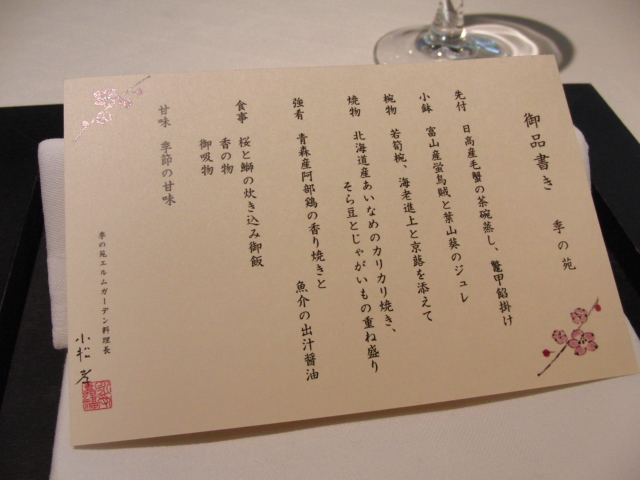 御品書き　季の苑
先付　日高産毛蟹の茶碗蒸し、鼈甲餡掛け
小鉢　富山産蛍烏賊と葉山葵のジュレ
椀物　若筍椀、海老進上と京蕗を添えて
焼物　北海道産あいなめのカリカリ焼き、
そら豆とじゃがいもの重ね盛り
強肴　青森産阿部鶏の香り焼きと
魚介の出汁醤油
食事　桜と鰤の炊き込み御飯
香の物
御吸物
甘味　季節の甘味
季の苑エルムガーデン料理長
小松